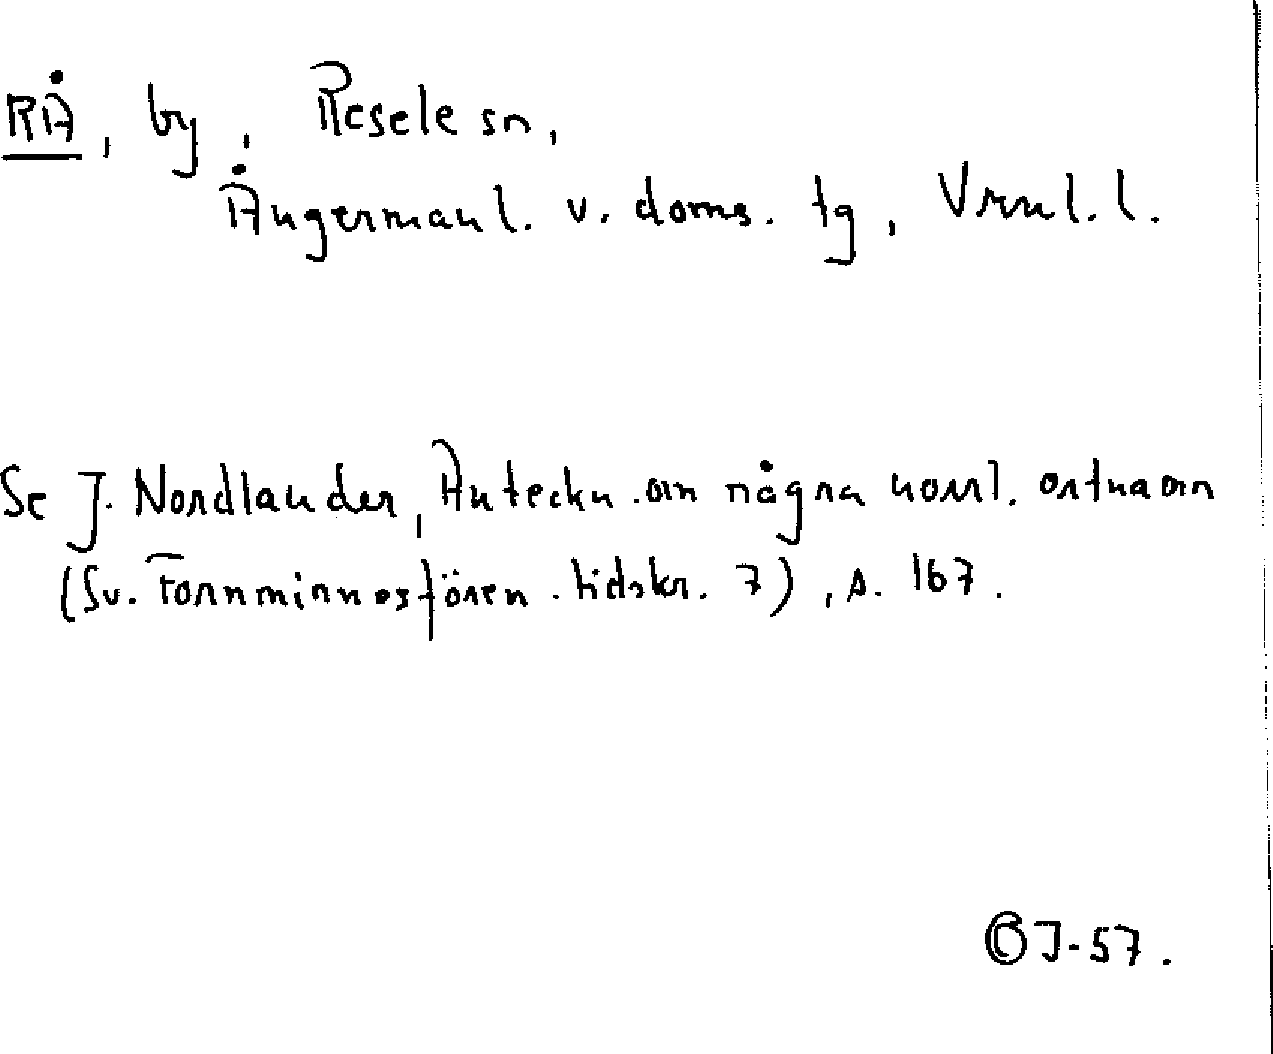 RÅ, by, Resele sn,
Ångermanl. v. doms. tg, Vrnl. l.
Se J. Nordlander, Anteckn. om några norrl. ortnamn
(Sv. Fornminnesfören. tidskr. 7), s. 167.
J-57.